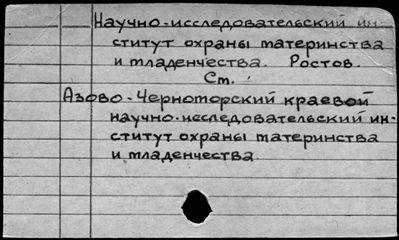 Научно-исследовательский ин-
ститут охраны материнства
и младенчества. Ростов.
См.
Азово-Черноморский краевой
научно-исследовательский ин-
ститут охраны материнства
и младенчества.